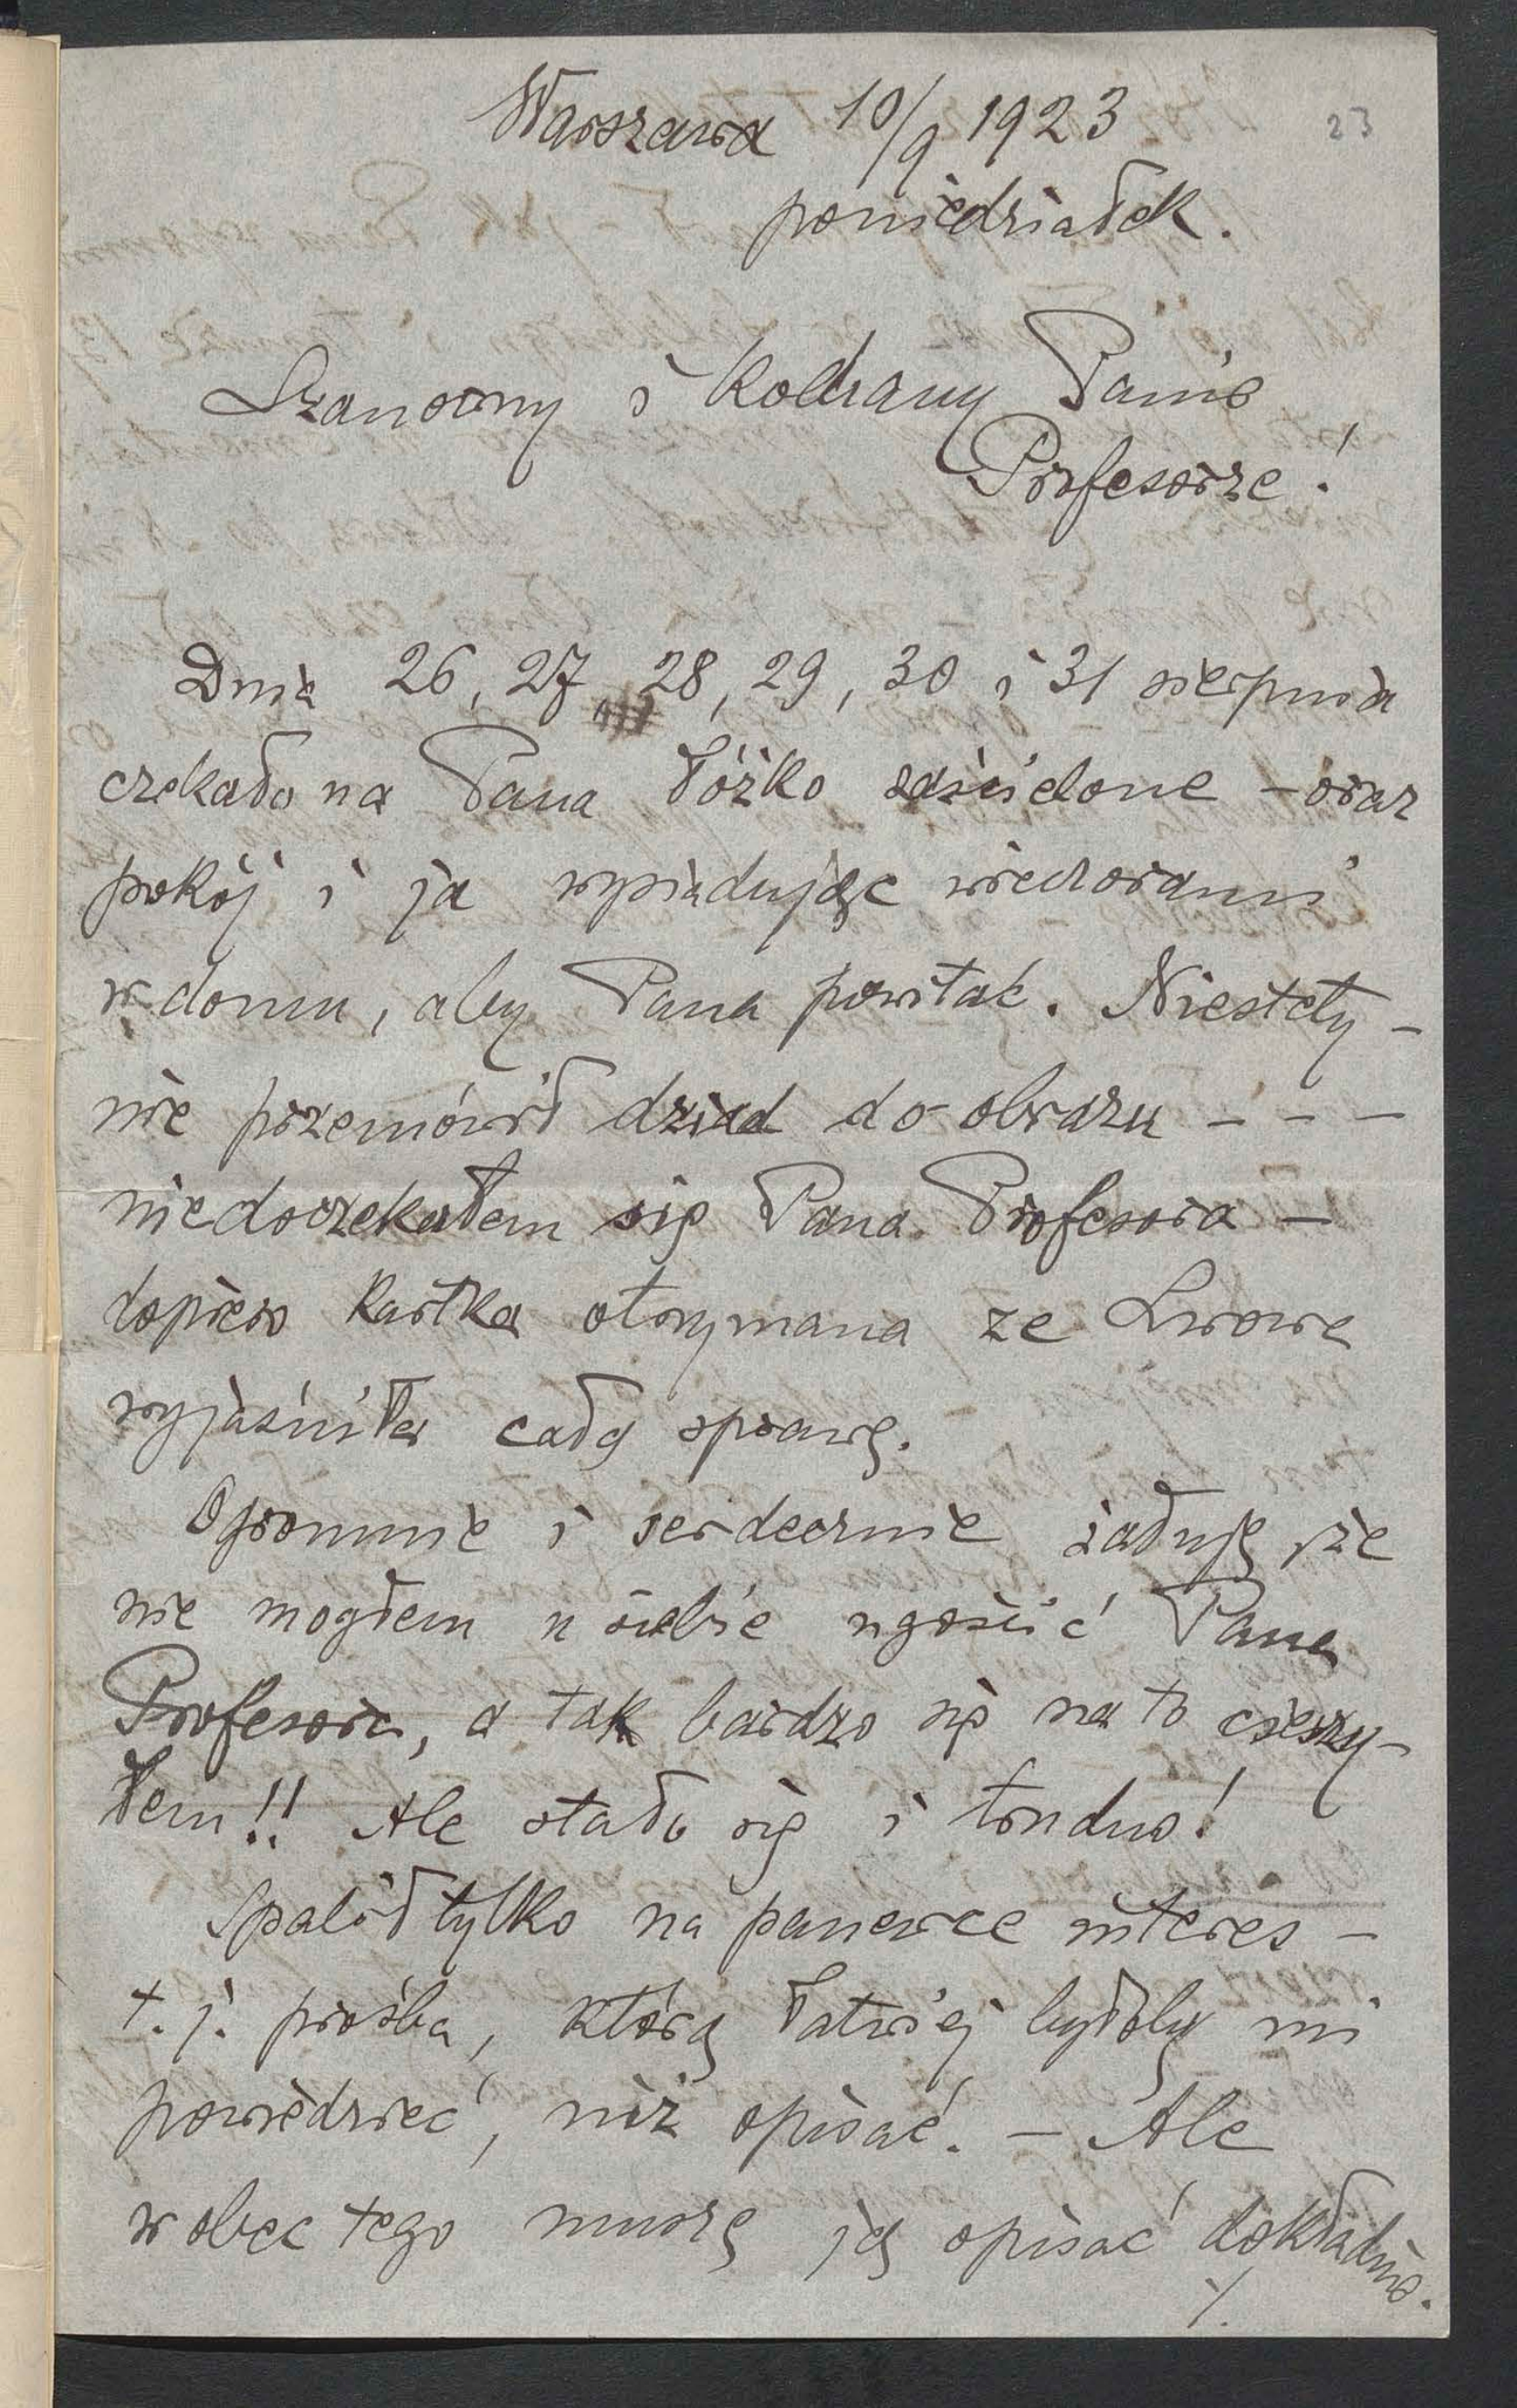 23
Warszawa 10/9 1923
poniedziałek.
Szanowny i Kochany Panie
Profesorze!
Dnia 26, 27, 28, 29, 30 i 31 sierpnia
czekało na Pana łóżko zaścielone – oraz
pokój i ja wysiadując wieczorami
w domu, aby Pana powitać. Niestety –
nie przemówił dziad do obrazu – – –
niedoczekałem się Pana Profesora –
dopiero kartka otrzymana ze Lwowa
wyjaśniła całą sprawę.
Ogromnie i serdecznie żałuję, że
nie mogłem u siebie ugościć Pana
Profesora, a tak bardzo się na to cieszy-
łem!! Ale stało się i trudno!
Spalił tylko na panewce interes –
t. j. prośba, którą łatwiej byłoby mi
powiedzieć, niż opisać. – Ale
wobec tego muszę ją opisać dokładnie.
./.